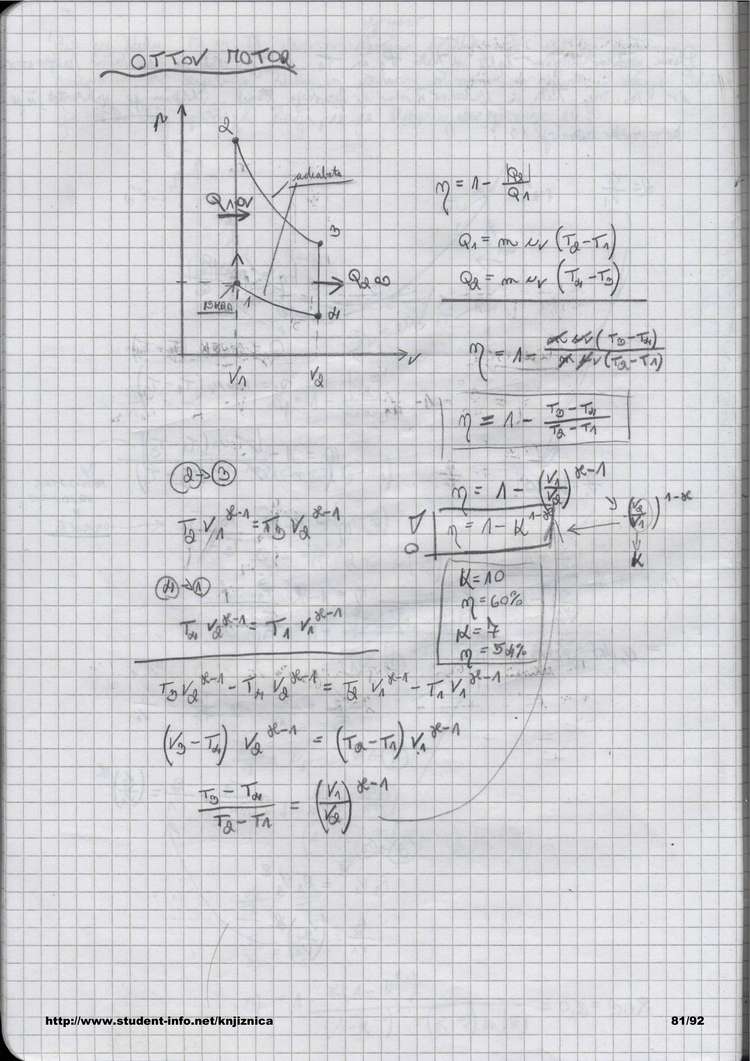 OTTOV MOTOR
p
2
adiabate
Q1 dov
3
Q2 od
ISKRA
1
4
V1
V2
V
η = 1 - |Q2|/Q1
Q1 = m cv (T2 - T1)
Q2 = m cv (T4 - T3)
η = 1 - m cv (T3 - T4) / m cv (T2 - T1)
η = 1 - (T3 - T4)/(T2 - T1)
η = 1 - (V1/V2)^ϰ-1
η = 1 - K^1-ϰ
(V2/V1)^1-ϰ
K
K = 10
η = 60%
K = 7
η = 54%
2 → 3
T2 V1^ϰ-1 = T3 V2^ϰ-1
4 → 1
T4 V2^ϰ-1 = T1 V1^ϰ-1
T3 V2^ϰ-1 - T4 V2^ϰ-1 = T2 V1^ϰ-1 - T1 V1^ϰ-1
(V3 - T4) V2^ϰ-1 = (T2 - T1) V1^ϰ-1
(T3 - T4)/(T2 - T1) = (V1/V2)^ϰ-1
http://www.student-info.net/knjiznica
81/92